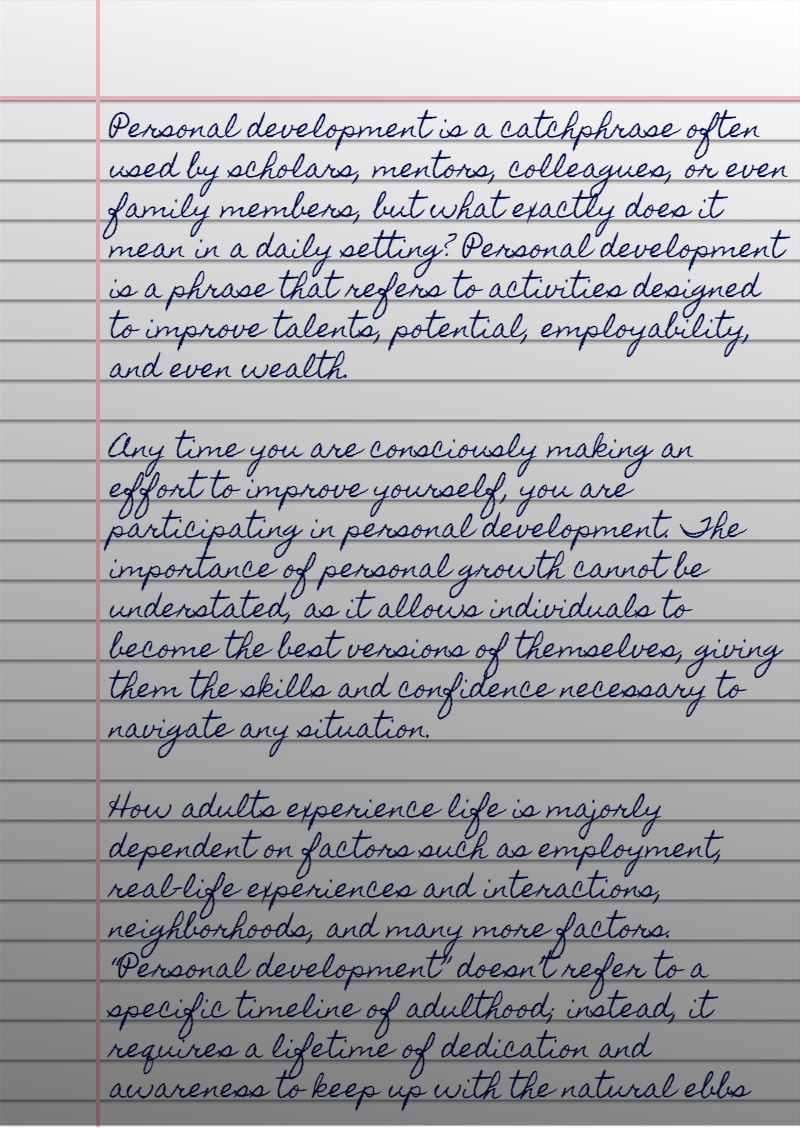 Personal development is a catchphrase often
used by scholars, mentors, colleagues, or even
family members, but what exactly does it
mean in a daily setting? Personal development
is a phrase that refers to activities designed
to improve talents, potential, employability,
and even wealth.
Any time you are consciously making an
effort to improve yourself, you are
participating in personal development. The
importance of personal growth cannot be
understated, as it allows individuals to
become the best versions of themselves, giving
them the skills and confidence necessary to
navigate any situation.
How adults experience life is majorly
dependent on factors such as employment,
real-life experiences and interactions,
neighborhoods, and many more factors.
"Personal development" doesn't refer to a
specific timeline of adulthood; instead, it
requires a lifetime of dedication and
awareness to keep up with the natural ebbs